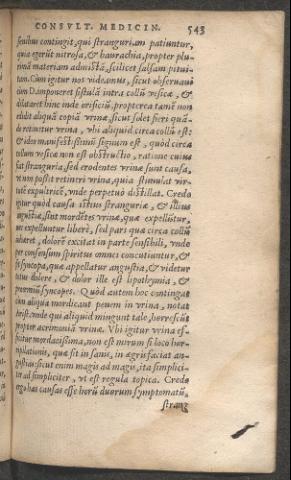 CONSVLT. MEDICIN. 543
senibus contingit, qui stranguriam patiuntur,
quia egerũt nitrosa, & pituitam
nimã materiam admistã, scilicet salsam pitui-
tam. Cùm igitur nos videamus, sicut obseruaui
cùm D. imponeret fistulã intra collũ vesicæ, &
dilataret hinc inde orificiũ, propterea tamẽ non
exibit aliquã copiã vrinæ, sicut solet fieri quã-
do retinetur vrina, vbi aliquid circa collũ est:
& ideo manifestissimũ signum est, quòd circa
collum vesicæ non est obstructio, ratione cuius
sit stranguria, sed erodentes vrinæ sunt causa,
vt non possit retineri vrina, quia stimulat vir-
tutẽ expultricẽ, vnde perpetuò distillat. Credo
igitur quòd causa istius stranguriæ, & illius
angustiæ, sint mordẽtes vrinæ, quæ expellũtur,
nec expelluntur liberè, sed pars quæ circa collũ
adhæret, dolorẽ excitat in parte sensibili, vnde
per consensum spiritus omnes concutiuntur, &
fit syncopa, quæ appellatur angustia, & videtur
totus dolere, & dolor ille est lipothymia, &
præmiũ syncopes. Quòd autem hoc contingat
cùm aliqua mordicant peuem in vrina, notat
vnde qui aliquid mingunt tale, horrescũt
propter acrimoniã vrinæ. Vbi igitur vrina es-
mordacissima, non est mirum si loco hor-
ripilationis, quæ fit in sanis, in ægris faciat an-
gustias: sicut enim magis ad magis, ita simplici-
ter ad simpliciter, vt est regula topica. Credo
ego has causas esse horũ duorum symptomatũ,
strang